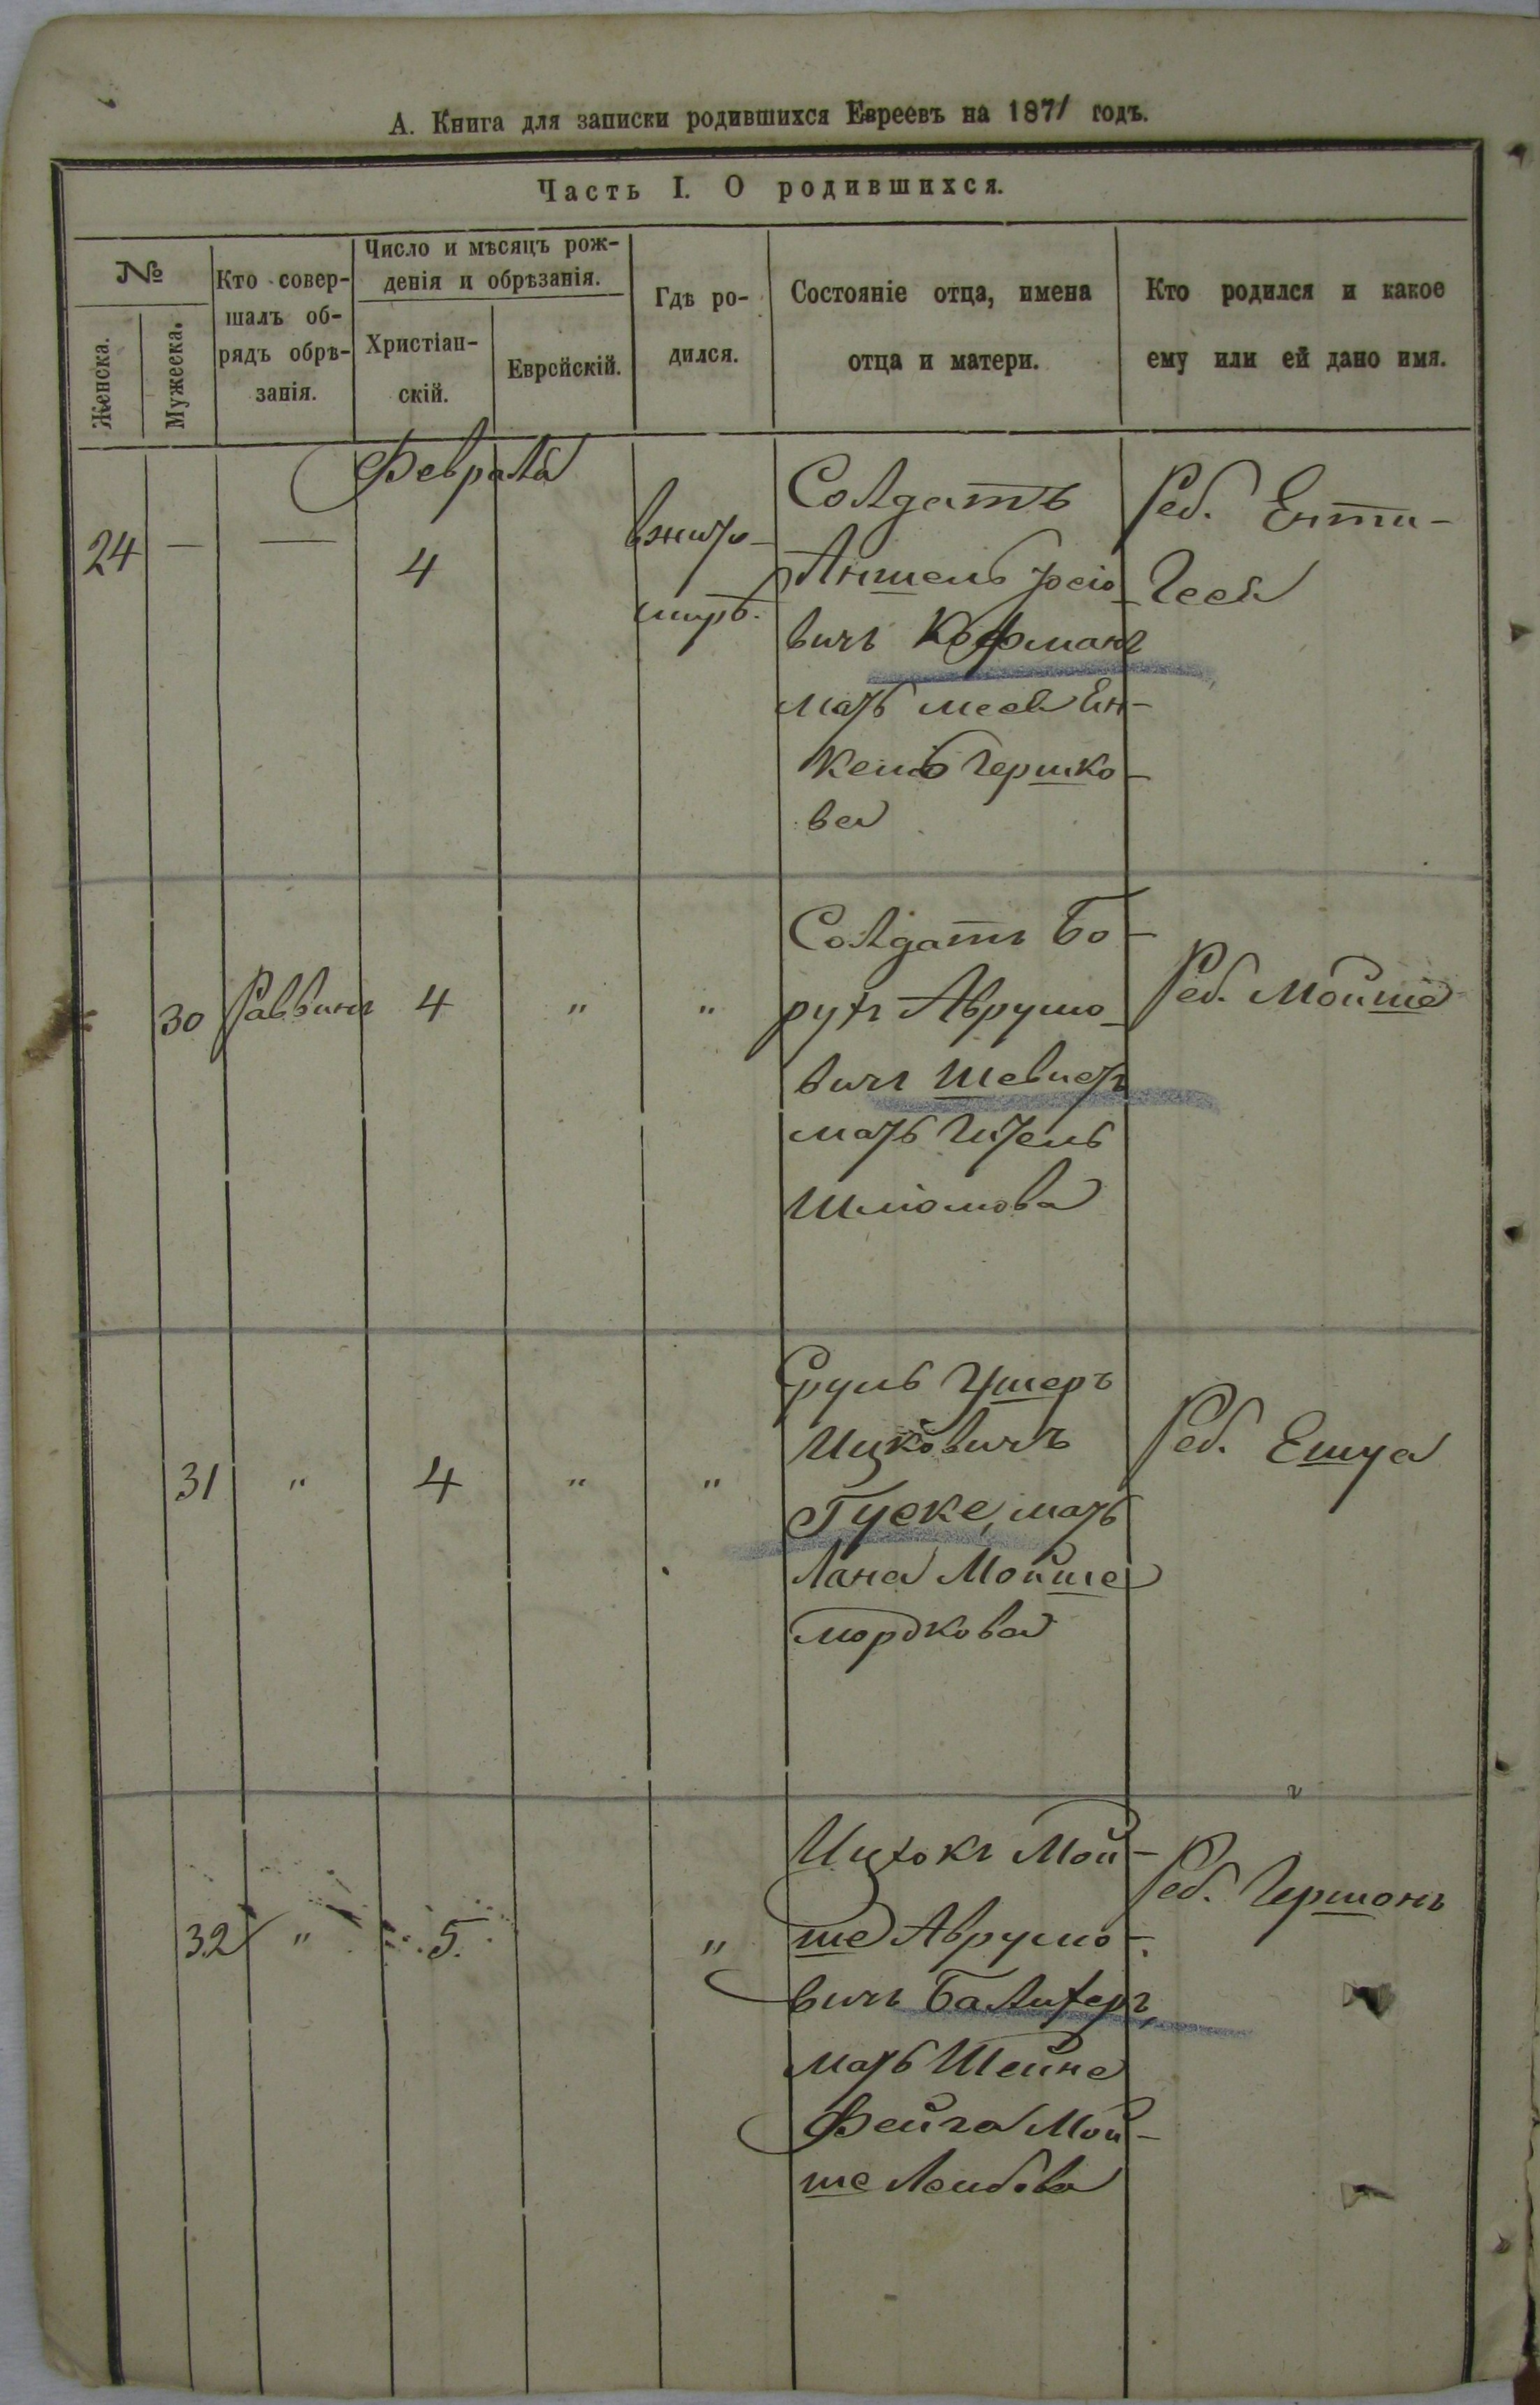 А. Книга для записки родившихся Евреевъ на 1871 годъ.
Часть I. О родившихся.
№
Женска.
Мужеска.
Кто совер-
шалъ об-
рядъ обрѣ-
занія.
Число и мѣсяцъ рож-
денія и обрѣзанія.
Христіан-
скій.
Еврейскій.
Гдѣ ро-
дился.
Состояніе отца, имена
отца и матери.
Кто родился и какое
ему или ей дано имя.
Февраля
24 — — 4
вжито-
мирѣ.
Солдатъ
Аншель Іосіо
вичъ Кофманъ
мать
Гершко-
ва
Реб. Енти-
30 Раввинъ 4 " "
Солдатъ Бо-
рухъ Аврумо-
вичъ Шевчерь
мать Гитель
Шліомова
Реб. Мойше
31 " 4 " "
Сруль Ушеръ
Ицковичъ
Гуске, мать
Хана Мойше
мордкова
Реб. Ешуа
32 " 5. "
Ицхокъ Мой-
ше Аврумо-
вичъ Балихеръ,
мать Шейне
Фейга Мой-
ше Лейбова
Реб. Гершонъ